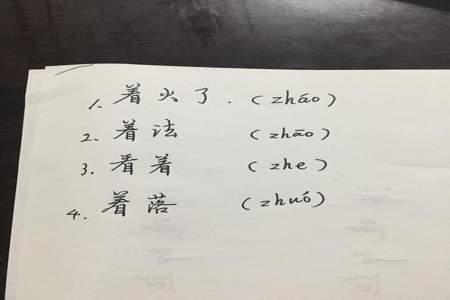 1. 着火了.(zháo)
2. 着法 (zhāo)
3. 看着 (zhe)
4. 着落 (zhuó)